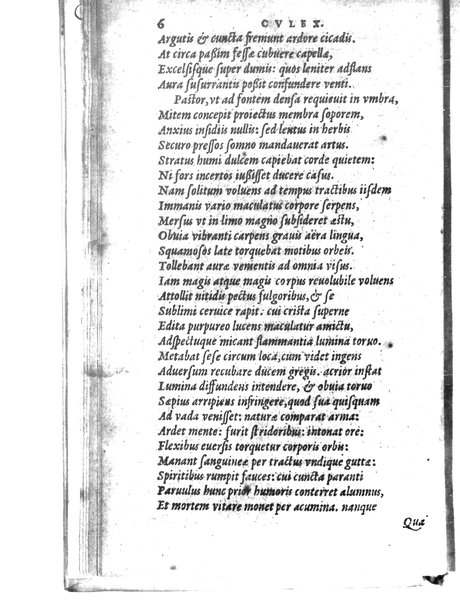 6 CVLEX.
Argutis & cuncta fremunt ardore cicadis.
At circa paßim fessæ cubuere capellæ,
Excelsisque super dumis: quos leniter adflans
Aura susurrantis poßit confundere venti.
Pastor, vt ad fontem densa requieuit in vmbra,
Mitem concepit proiectus membra soporem,
Anxius insidiis nullis: sed lentus in herbis
Securo pressos somno mandauerat artus.
Stratus humi dulcem capiebat corde quietem:
Ni fors incertos iußisset ducere casus.
Nam solitum voluens ad tempus tractibus iisdem
Immanis vario maculatus corpore serpens,
Mersus vt in limo magno subsideret æstu,
Obuia vibranti carpens grauis aëra lingua,
Squamosos late torquebat motibus orbeis.
Tollebant auræ venientis ad omnia visus.
Iam magis atque magis corpus reuolubile voluens
Attollit nitidis pectus fulgoribus, & se
Sublimi ceruice rapit: cui crista superne
Edita purpureo lucens maculatur amictu,
Adspectuque micant flammantia lumina toruo.
Metabat sese circum loca, cum videt ingens
Aduersum recubare ducem gregis. acrior instat
Lumina diffundens intendere, & obuia toruo
Sæpius arripiens infringere, quod sua quisquam
Ad vada venisset: naturæ comparat arma:
Ardet mente: furit stridoribus: intonat ore:
Flexibus euersis torquetur corporis orbis:
Manant sanguineæ per tractus vndique guttæ:
Spiritibus rumpit fauces: cui cuncta paranti
Paruulus hunc prior humoris conterret alumnus,
Et mortem vitare monet per acumina. nanque
Qua